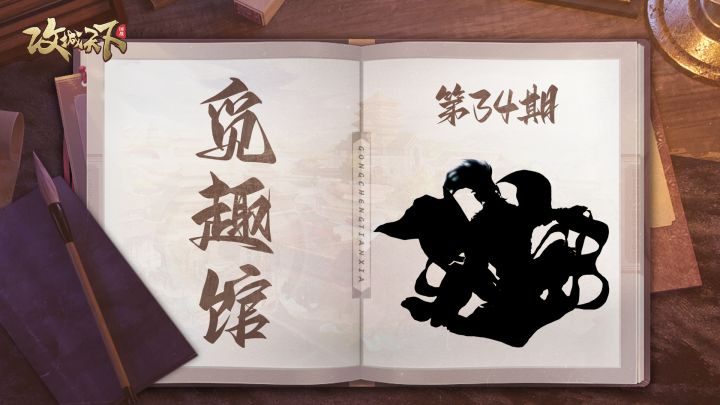 攻城天下
觅趣馆
第34期
GONGCHENGTIANXIA